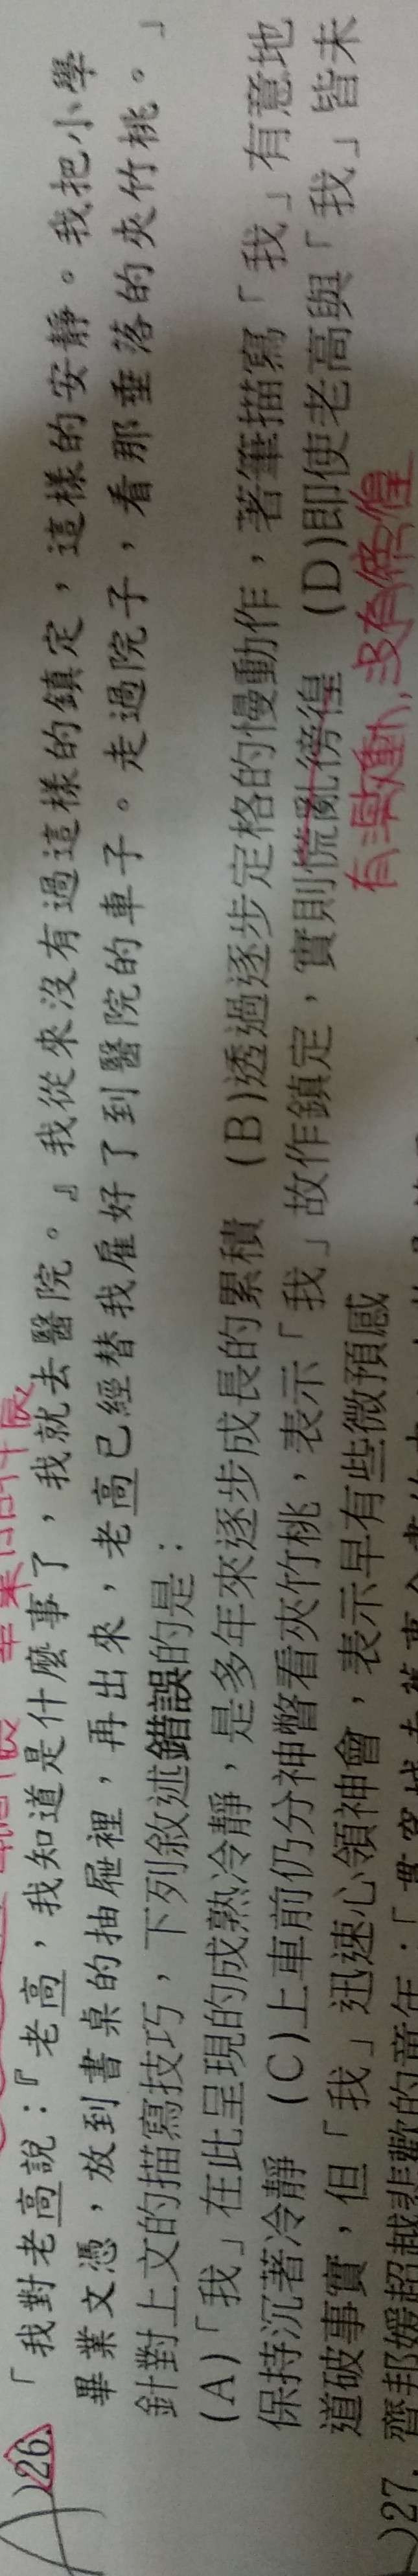 )26.「我對老高說:『老高,我知道是什麼事了,我就去醫院。』我從來沒有過這樣的鎮定,這樣的安靜。我把小學
畢業文憑,放到書桌的抽屜裡,再出來,老高已經替我雇好了到醫院的車子。走過院子,看那垂落的夾竹桃。」
針對上文的描寫技巧,下列敘述錯誤的是:
(A)「我」在此呈現的成熟冷靜,是多年來逐步成長的累積 (B)透過逐步定格的慢動作,著筆描寫「我」有意地
保持沉著冷靜 (C)上車前仍分神瞥看夾竹桃,表示「我」故作鎮定,實則慌亂徬徨 (D)即使老高與「我」皆未
有激動,沒有徬徨
道破事實,但「我」迅速心領神會,表示早有些微預感
)27.齊邦媛超越悲歡的童年:「